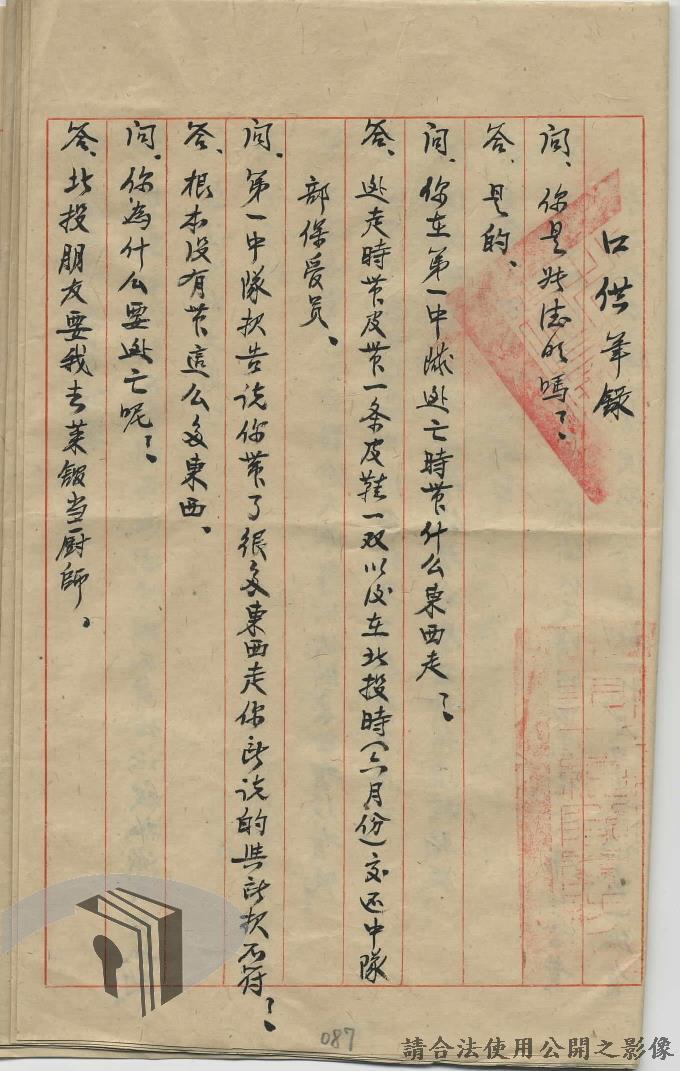 口供筆錄
問、你是 德 嗎？
答、是的、
問、你在第一中隊逃亡時帶什么東西走？
答、逃走時帶皮帶一条皮鞋一双以後在北投時（六月份）交还中隊
部保受員、
問、第一中隊報告说你帶了很多東西走你所说的與所報不符？
答、根本没有帶這么多東西、
問、你為什么要逃亡呢？
答、北投朋友要我去菜館当厨師。
087
請合法使用公開之影像